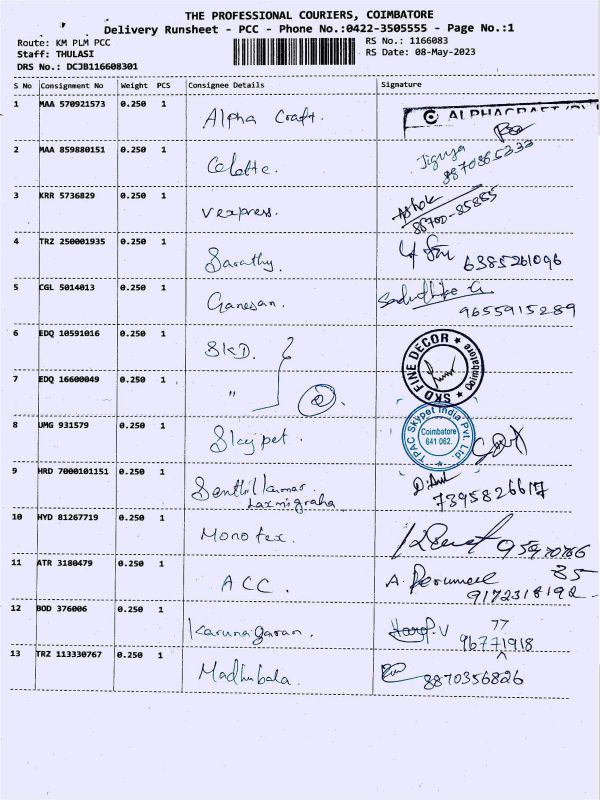 THE PROFESSIONAL COURIERS, COIMBATORE
Delivery Runsheet - PCC - Phone No.:0422-3505555 - Page No.:1
Route: KM PLM PCC RS No.: 1166083
Staff: THULASI RS Date: 08-May-2023
DRS No.: DCJB116608301
S No Consignment No Weight PCS Consignee Details Signature
1 MAA 570921573 0.250 1 Alpha Craft. ALPHACRAFT
2 MAA 859880151 0.250 1 Jigya 8870865333
3 KRR 5736829 0.250 1 Vexpress. Ashok 88700-85885
4 TRZ 250001935 0.250 1 Sarathy. 6385261096
5 CGL 5014013 0.250 1 Ganesan. 9655915289
6 EDQ 10591016 0.250 1 SKD. SKD FINE DECOR Coimbatore
7 EDQ 16600049 0.250 1 "
8 UMG 931579 0.250 1 Skypet. TPAC Skypet India Pvt. Ltd. Coimbatore 641 062.
9 HRD 7000101151 0.250 1 Senthil Kumar Laxmigraha 7395826617
10 HYD 81267719 0.250 1 Monotex.
11 ATR 3180479 0.250 1 ACC. A. Perumal 9172318192
12 BOD 376006 0.250 1 Karunagaran. V 77 96771918
13 TRZ 113330767 0.250 1 Madhubala. 8870356826